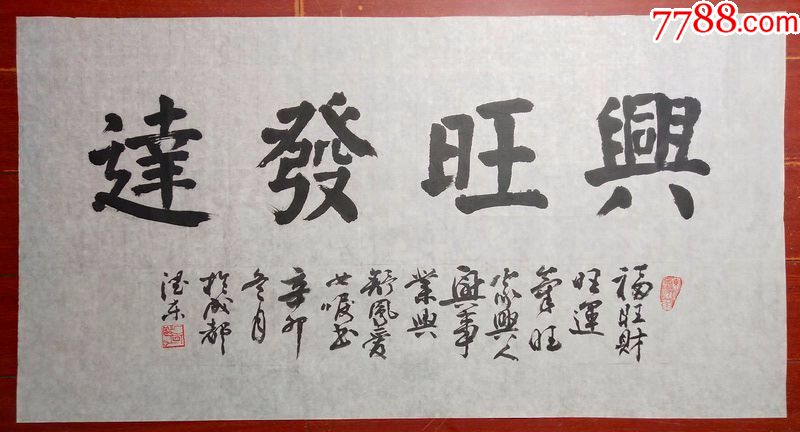 7788.com
興旺發達
福旺財
旺運
氣旺
家興人
興事
業興
舒鳳愛
女囑書
辛卯
冬月
於成都
德東